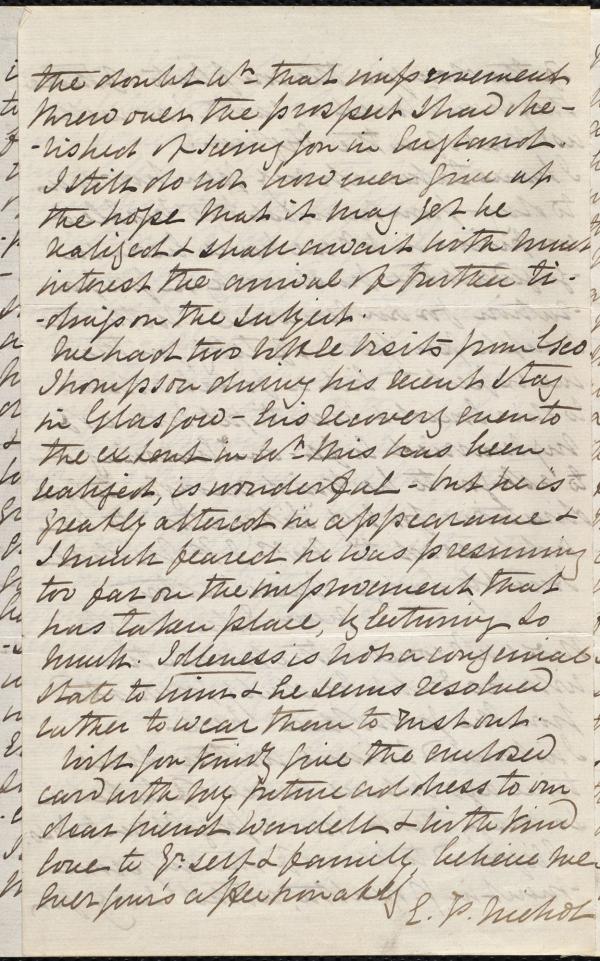 the doubt wh. that improvement
threw over the prospect I had che-
-rished of seeing you in England.
I still do not however give up
the hope that it may yet be
realized & shall await with much
interest the arrival of further ti-
-dings on the subject.
We had two little visits from Geo
Thompson during his recent stay
in Glasgow - his recovery even to
the extent in wh. this has been
realized, is wonderful - but he is
greatly altered in appearance &
I much feared he was presuming
too far on the improvement that
has taken place, by lecturing so
much. Idleness is not a congenial
state to him & he seems resolved
rather to wear than to rust out.
Will you kindly give the enclosed
card with my future address to our
dear friend Wendell & with kind
love to yr. self & family, believe me
ever yours affectionately
E. P. Nichol